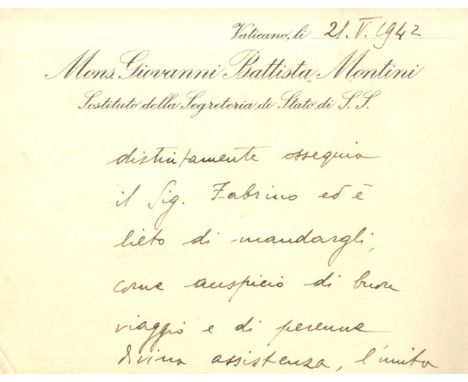 Vaticano, li 21. V. 1942
Mons. Giovanni Battista Montini
Sostituto della Segreteria di Stato di S. S.
distintamente ossequia
il Sig. Fabrino ed è
lieto di mandargli,
come auspicio di buon
viaggio e di perenne
divina assistenza, l'unita